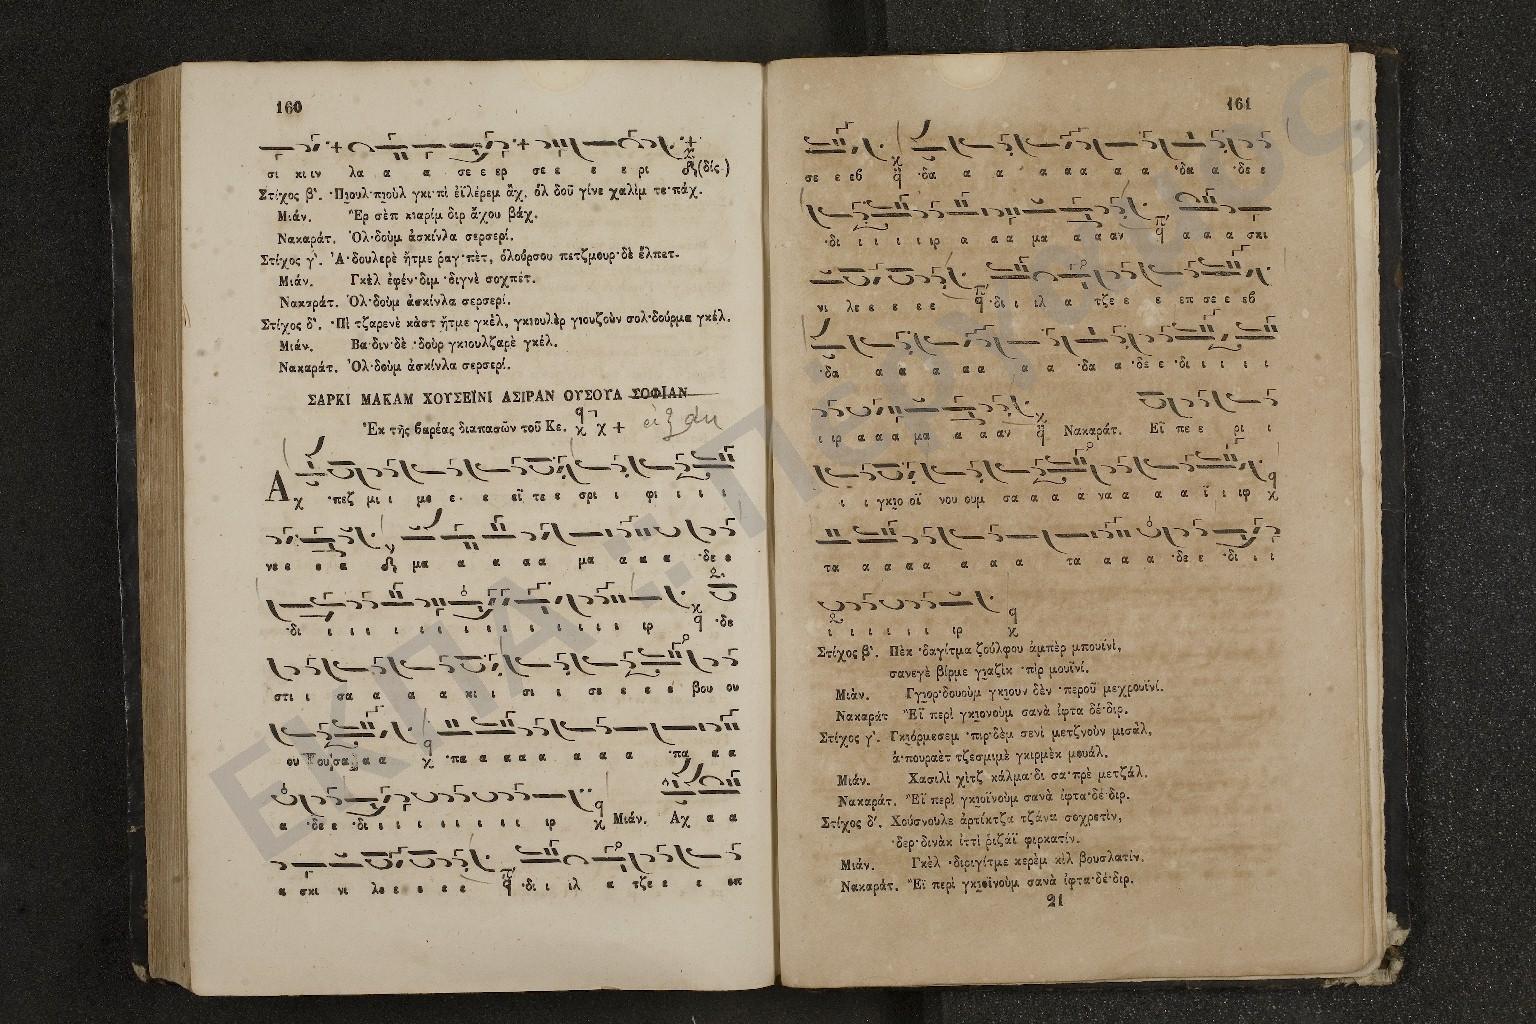 160
σι κι ιν λα α α σε ε ερ σε ε ε ε ε ρι (δίς.)
Στίχος β'. ·Πιουλ·πιοὺλ γκι·πὶ ἐϊλέρεμ ἄχ, ὀλ δοῦ γίνε χαλὶμ τε·πάχ.
Μιάν. Ἒρ σὲπ κιαρίμ διρ ἄχου βάχ.
Νακαράτ. Ὀλ·δοὺμ ἀσκίνλα σερσερί.
Στίχος γ'. Ἀ·δουλερὲ ἤτμε ῥαγ·πὲτ, ὀλούρσου πετζμουρ·δὲ ἔλπετ-
Μιάν. Γκὲλ ἐφέν·διμ ·διγνὲ σοχπέτ.
Νακαράτ. Ὀλ·δοὺμ ἀσκίνλα σερσερί.
Στίχος δ'. ·Πὶ τζαρενὲ κὰστ ἤτμε γκὲλ, γκιουλὲρ γιουζοὺν σολ·δούρμα γκέλ.
Μιάν. Βα·διν·δὲ ·δοὺρ γκιουλζαρὲ γκέλ.
Νακαράτ. Ὀλ·δοὺμ ἀσκίνλα σερσερί.
ΣΑΡΚΙ ΜΑΚΑΜ ΧΟΥΣΕΪΝΙ ΑΣΙΡΑΝ ΟΥΣΟΥΛ ΣΟΦΙΑΝ
Ἐκ τῆς βαρέας διαπασῶν τοῦ Κε.
Α χ ·πεζ μι ι με ε ε εϊ τε ε σρι ι φι ι ι ι
νε ε ε α μα α α α α μα α α α ·δε ε
·δι ι ι ι ι ι ι ι ι ι ι ι ι ιρ ·δε
στι ι σα α α α κι ι σι ι σε ε ε ε βου ου
ου σα α α ·πα α α α α α α α ·πα α α
α ·δε ε ·δι ι ι ι ι ι ι ι ι ιρ Μιάν. Αχ α α
α σκι νι λε ε ε ε ε ·δι ι ιλ α τζε ε ε επ
161
σε ε εβ ·δα α α α α α α ·δα α ·δε ε
·δι ι ι ι ιρ α α α μα α α αν α α α σκι
νι λε ε ε ε ε ·δι ι ιλ α τζε ε ε επ σε ε εβ
·δα α α α α α α ·δα α ·δε ε ·δι ι ι ι
ι ιρ α α α μα α α αν Νακαράτ. Εϊ πε ε ρι ι
ι ι γκιο οϊ νου ουμ σα α α α να α α α ϊ ι ιφ
τα α α α α α α α τα α α α ·δε ε ·δι ι ι
ι ι ι ι ι ι ιρ
Στίχος β'. Πὲκ ·δαγίτμα ζούλφου ἀμπὲρ μπουϊνὶ,
σανεγὲ βίρμε γιαζὶκ ·πὶρ μουϊνί.
Μιάν. Γγιορ·δουοὺμ γκιουν δὲν ·περοῦ μεχρουϊνί.
Νακαράτ Ἒϊ περὶ γκιονοὺμ σανὰ ἰφτα δέ·διρ.
Στίχος γ'. Γκιόρμεσεμ ·πιρ·δὲμ σενὶ μετζνοὺν μισὰλ,
ἀ·πουραὲτ τζεσμιμὲ γκιρμὲκ μουάλ.
Μιάν. Χασιλὶ χὶτζ κάλμα·δι σα·πρὲ μετζάλ.
Νακαράτ. Ἒϊ περὶ γκιοϊνοὺμ σανὰ ἰφτα·δέ·διρ.
Στίχος δ'. Χούσνουλε ἀρτίκτζα τζάνα σοχρετὶν,
·δερ·δινὰκ ἰττὶ ῥιζάϊ φιρκατίν.
Μιάν. Γκὲλ ·διριγίτμε κερὲμ κὶλ βουσλατίν.
Νακαράτ. Ἒϊ περὶ γκιοϊνοὺμ σανὰ ἰφτα·δέ·διρ.
21